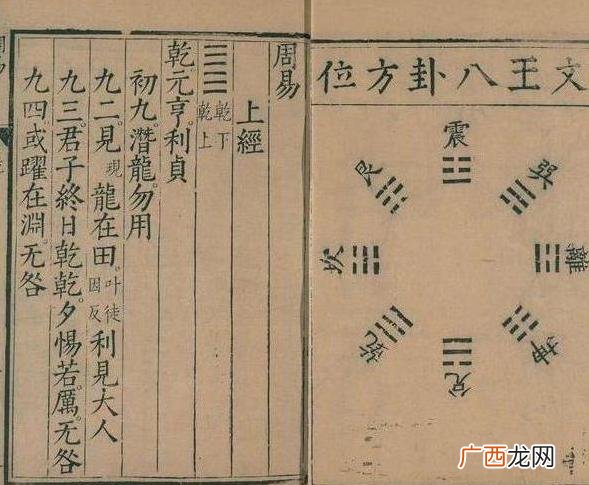 文王八卦方位
震
巽
離
坤
兌
乾
坎
艮
周易
上經
乾下
乾上
乾元亨。利貞
初九。潛龍。勿用
九二。見現龍在田。叶徒因反利見大人
九三。君子終日乾乾。夕惕若。厲。无咎
九四。或躍在淵。无咎
广西龙网